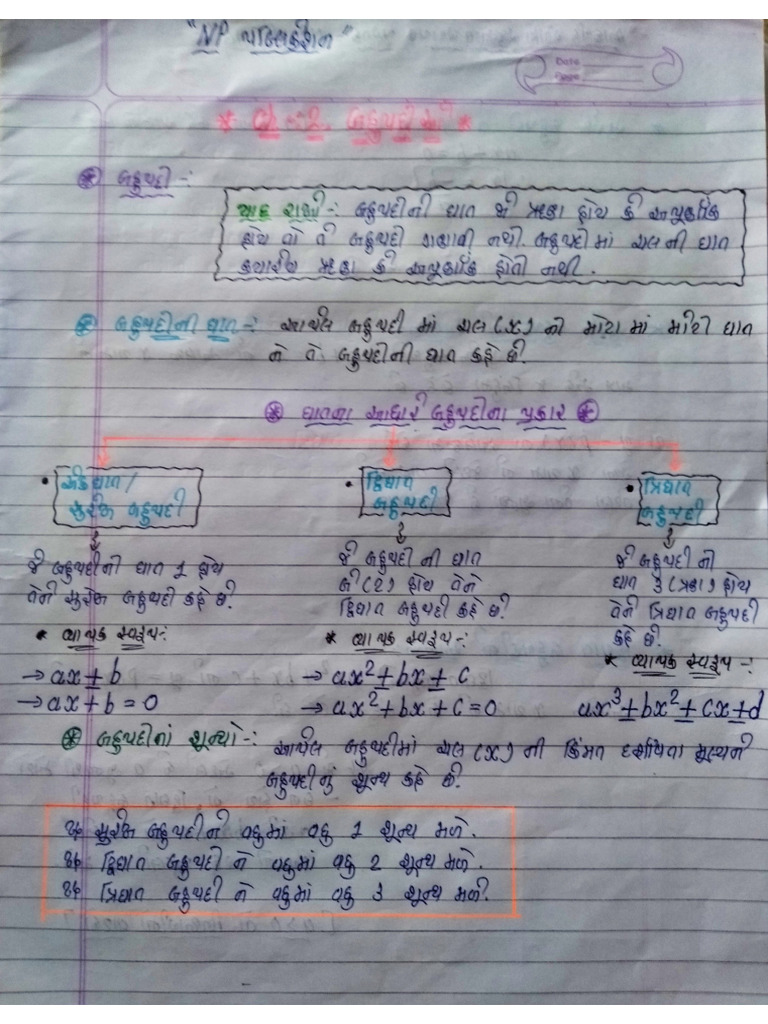 "NP પબ્લિકેશન"
Date
Page
* Ch-2. બહુપદીઓ *
* બહુપદી -:
યાદ રાખો -: બહુપદીની ઘાત જો ઋણ હોય કે અપૂર્ણાંક
હોય તો તે બહુપદી ગણાતી નથી. બહુપદીમાં ચલની ઘાત
ક્યારેય ઋણ કે અપૂર્ણાંક હોતી નથી.
* બહુપદીની ઘાત -: આપેલ બહુપદી માં ચલ (x) ની મોટા માં મોટી ઘાત
ને તે બહુપદીની ઘાત કહે છે.
* ઘાતના આધારે બહુપદીના પ્રકાર *
• એકઘાત / સુરેખ બહુપદી
જે બહુપદીની ઘાત 1 હોય
તેને સુરેખ બહુપદી કહે છે.
* વ્યાપક સ્વરૂપ -:
→ ax + b
→ ax + b = 0
• દ્વિઘાત બહુપદી
જે બહુપદી ની ઘાત
બે (2) હોય તેને
દ્વિઘાત બહુપદી કહે છે.
* વ્યાપક સ્વરૂપ -:
→ ax² + bx + c
→ ax² + bx + c = 0
• ત્રિઘાત બહુપદી
જે બહુપદી ની
ઘાત 3 (ત્રણ) હોય
તેને ત્રિઘાત બહુપદી
કહે છે.
* વ્યાપક સ્વરૂપ -:
ax³ + bx² + cx + d
* બહુપદીનાં શૂન્યો -: આપેલ બહુપદીમાં ચલ (x) ની કિંમત દર્શાવતા મૂલ્યને
બહુપદીનું શૂન્ય કહે છે.
સુરેખ બહુપદીને વધુમાં વધુ 1 શૂન્ય મળે.
દ્વિઘાત બહુપદી ને વધુમાં વધુ 2 શૂન્ય મળે.
ત્રિઘાત બહુપદી ને વધુમાં વધુ 3 શૂન્ય મળે.